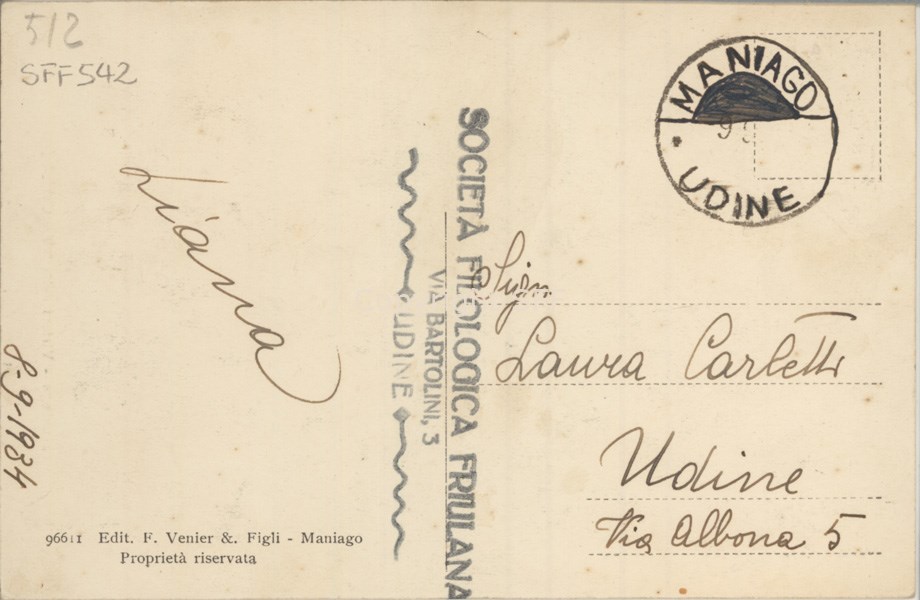 512
SFF542
Liana
8-9-1934
96611 Edit. F. Venier &. Figli - Maniago
Proprietà riservata
SOCIETÀ FILOLOGICA FRIULANA
VIA BARTOLINI, 3
UDINE
MANIAGO
UDINE
Sign
Laura Carletti
Udine
Via Albona 5